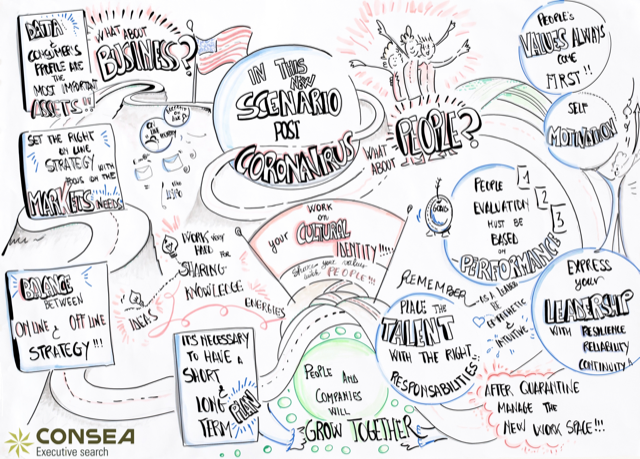 DATA
&
CONSUMER'S
PROFILE ARE
THE
MOST IMPORTANT
ASSETS!!
WHAT ABOUT
BUSINESS?
IN THIS
NEW
SCENARIO
POST
CORONAVIRUS
WHAT
ABOUT
PEOPLE?
PEOPLE'S
VALUES ALWAYS
COME
FIRST!!
SELF
MOTIVATION
SET THE RIGHT
ON LINE
STRATEGY WITH
FOCUS ON THE
MARKETS NEEDS
PEOPLE
EVALUATION
MUST BE
BASED
ON
PERFORMANCE
1
2
3
GOALS
WORK
ON
your CULTURAL
IDENTITY!!!!
Share your values
with PEOPLE!!!
WORK VERY
HARD FOR
SHARING
KNOWLEDGE
IDEAS
ENERGIES
BALANCE
BETWEEN
ON LINE & OFF LINE
STRATEGY!!!
IT'S NECESSARY
TO HAVE A
SHORT
&
LONG
TERM
PLAN
PEOPLE AND
COMPANIES
WILL
GROW TOGETHER
REMEMBER
PLACE THE
TALENT
WITH THE RIGHT
RESPONSABILITIES!!
EMPATHETIC
&
INTUITIVE
EXPRESS
your
LEADERSHIP
WITH RESILIENCE
RELIABILITY
CONTINUITY
AFTER QUARANTINE
MANAGE THE
NEW WORK SPACE!!!
CONSEA
Executive search